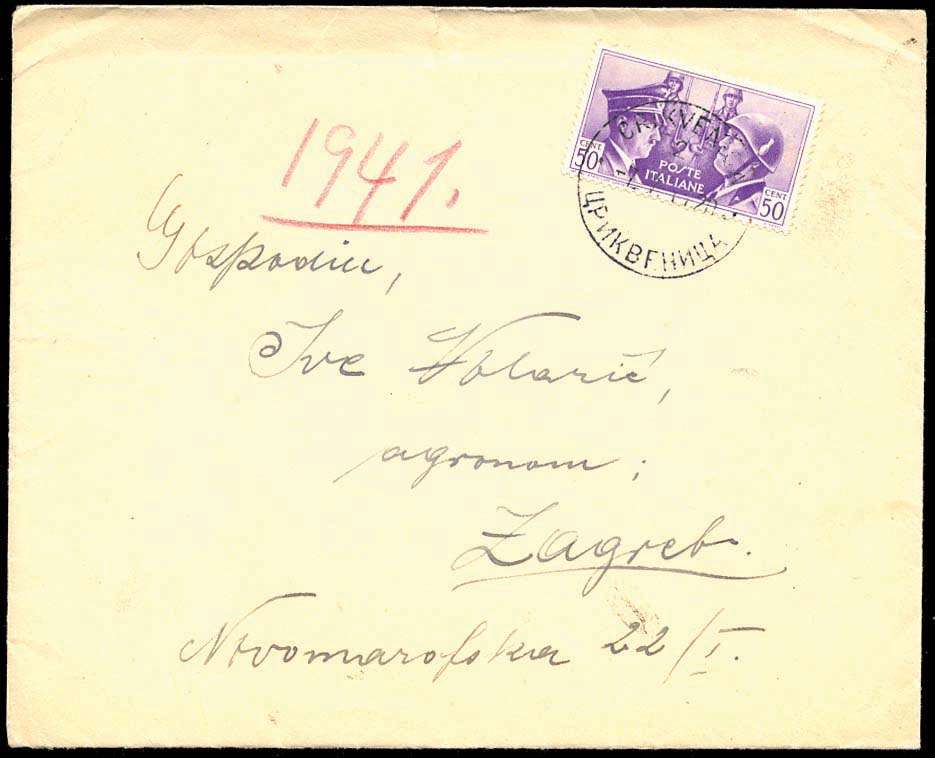 1941.
CENT 50
POSTE
ITALIANE
CENT 50
CRIKVENICA
2
ЦРИКВЕНИЦА
Gospodin,
Ive Volarić,
agronom;
Zagreb.
Novomarofska 22/I.